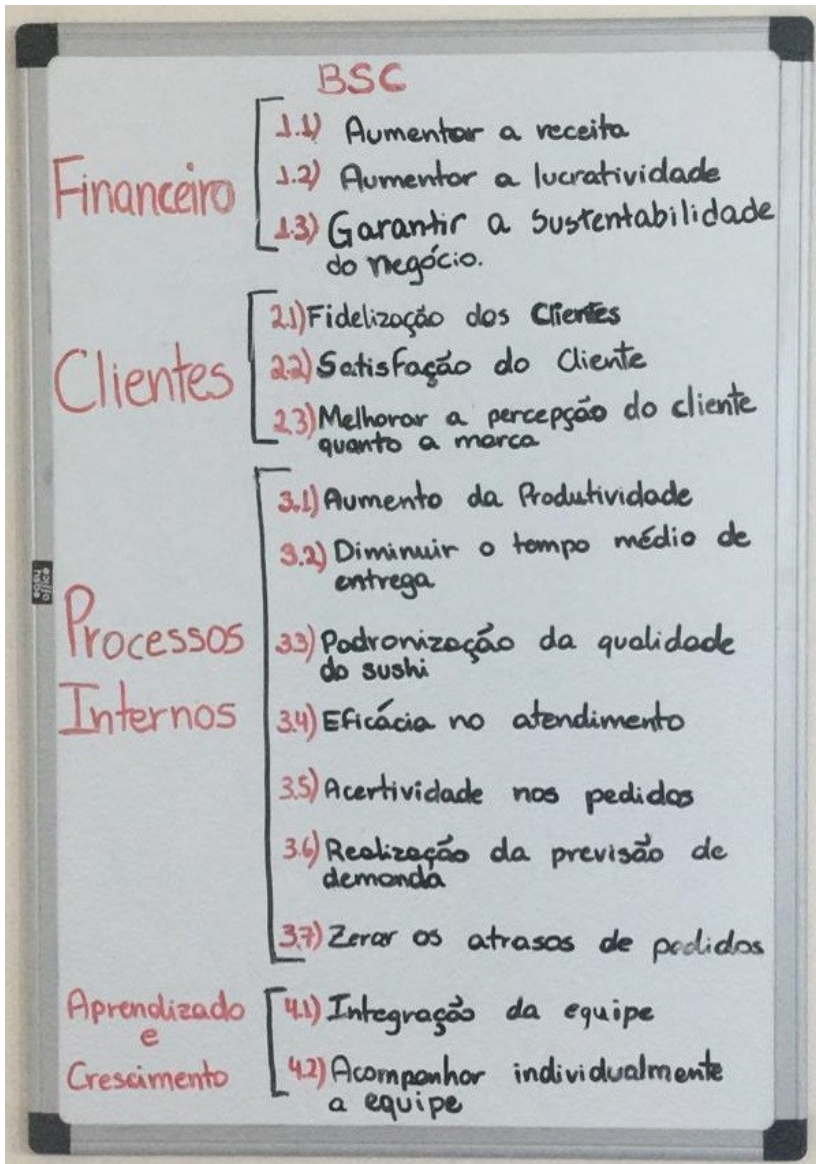 BSC
Financeiro
1.1) Aumentar a receita
1.2) Aumentar a lucratividade
1.3) Garantir a Sustentabilidade
do negócio.
Clientes
2.1) Fidelização dos Clientes
2.2) Satisfação do Cliente
2.3) Melhorar a percepção do cliente
quanto a marca
Processos
Internos
3.1) Aumento da Produtividade
3.2) Diminuir o tempo médio de
entrega
3.3) Padronização da qualidade
do sushi
3.4) Eficácia no atendimento
3.5) Acertividade nos pedidos
3.6) Realização da previsão de
demanda
3.7) Zerar os atrasos de pedidos
Aprendizado
e
Crescimento
4.1) Integração da equipe
4.2) Acompanhar individualmente
a equipe